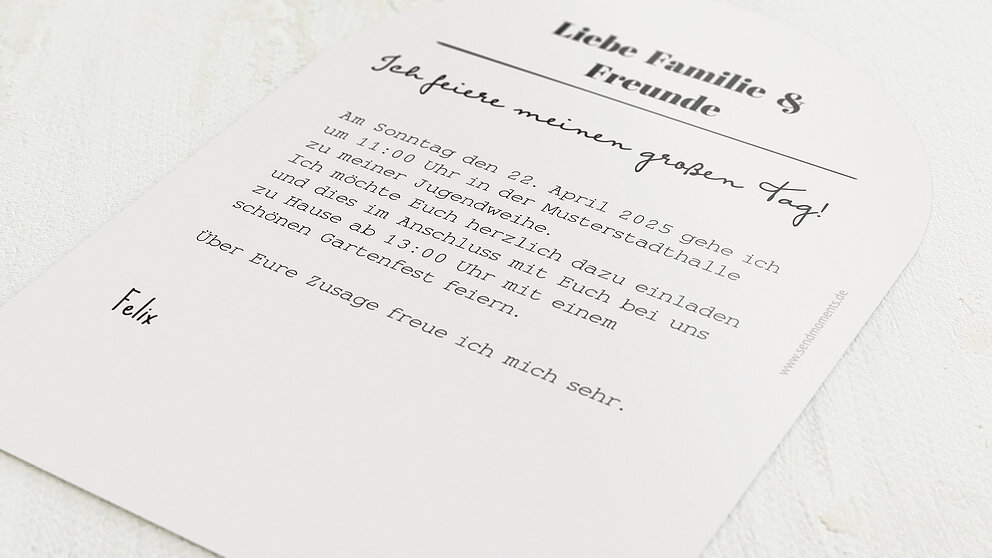 Liebe Familie &
Freunde
Ich feiere meinen großen Tag!
Am Sonntag den 22. April 2025 gehe ich
um 11:00 Uhr in der Musterstadthalle
zu meiner Jugendweihe.
Ich möchte Euch herzlich dazu einladen
und dies im Anschluss mit Euch bei uns
zu Hause ab 13:00 Uhr mit einem
schönen Gartenfest feiern.
Über Eure Zusage freue ich mich sehr.
Felix
www.sendmoments.de